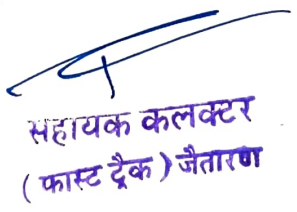 सहायक कलक्टर
( फास्ट ट्रैक ) जैतारण